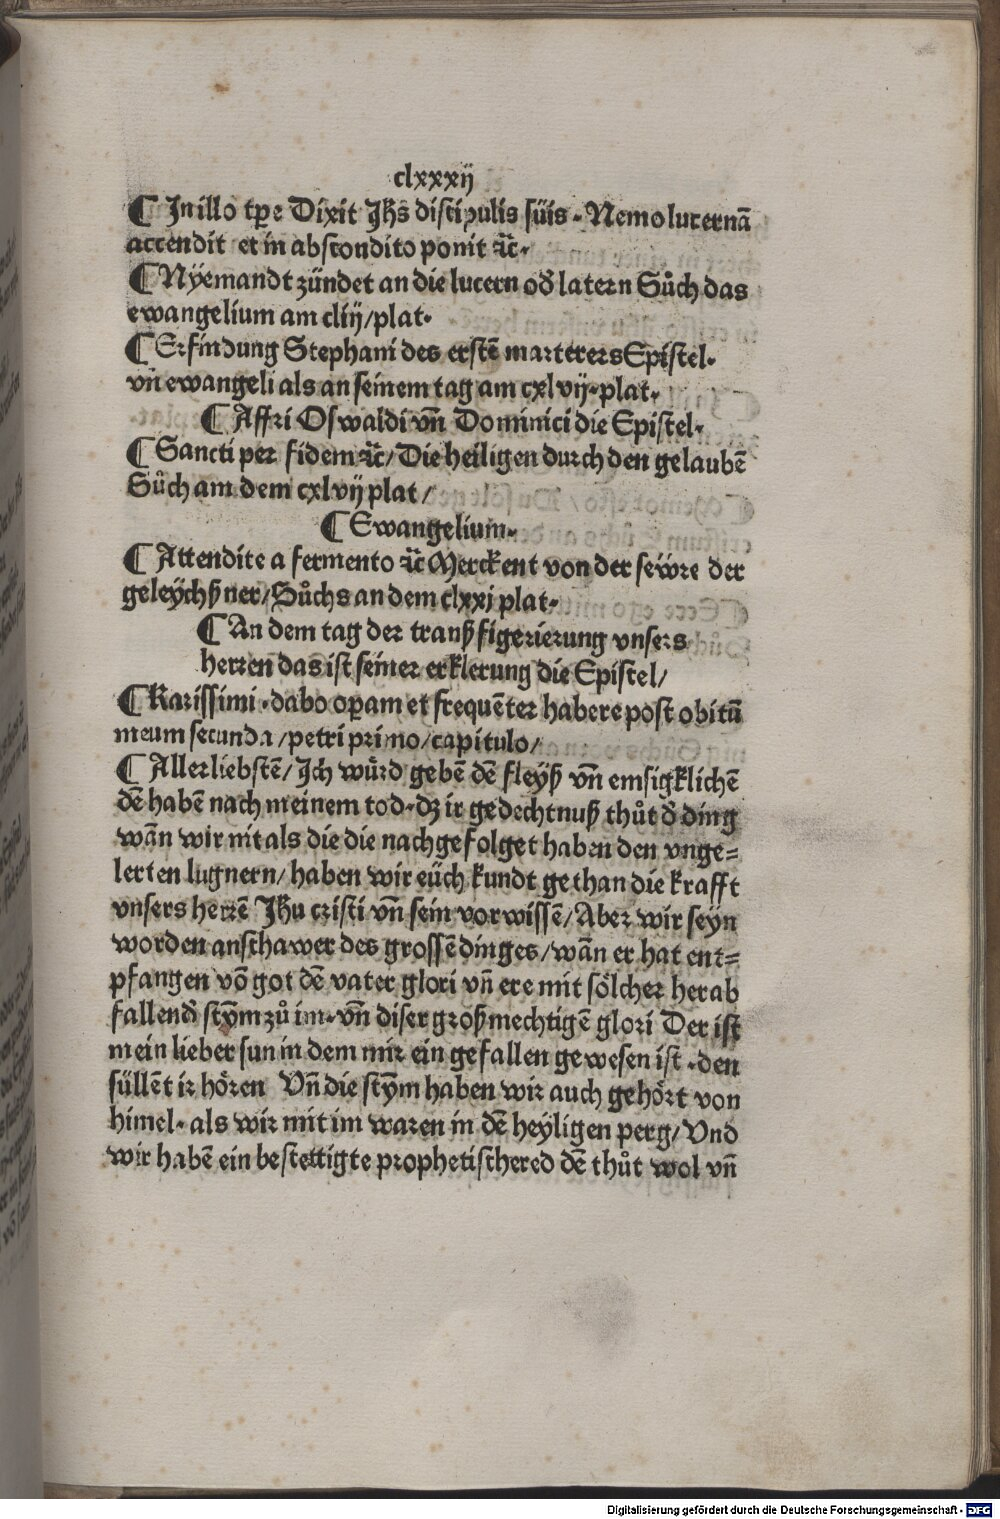 clxxxij
¶ In illo tp̄e Dixit Jhs discipulis suis. Nemo lucernā
accendit et in abscondito ponit ⁊c̄.
¶ Nÿemandt zündet an die lucern od̓ latern Sůch das
ewangelium am cliij/plat.
¶ Erfindung Stephani des erstē marterers Epistel.
vn̄ ewangeli als an seinem tag am cxlvij.plat.
¶ Affri Oswaldi vn̄ Dominici die Epistel.
¶ Sancti per fidem ⁊c̄/Die heiligen durch den gelaubē
Sůch am dem cxlvij plat/
¶ Ewangelium.
¶ Attendite a fermento ⁊c̄ Merckent von der sewre der
geleÿchßner/Sůchs an dem clxxj plat.
¶ An dem tag der tranßfigerierung vnsers
herren das ist seiner erklerung die Epistel/
¶ Karissimi.dabo operam et frequēter habere post obitū
meum secunda/petri primo/capitulo/
¶ Allerliebstē/Ich wůrd gebē dē fleÿß vn̄ emsigklichē
dē habē nach meinem tod.dz ir gedechtnuß thůt d̓ ding
wān wir nit als die die nachgefolget haben den vnge-
lerten lugnern/haben wir eüch kundt gethan die krafft
vnsers herrē Jhu cristi vn̄ sein vorwissē/Aber wir seyn
worden anschawer des grossē dinges/wān er hat ent-
pfangen vō got dē vater glori vn̄ ere mit sölcher herab
fallend̓ stȳm zů im.vn̄ diser großmechtigē glori Der ist
mein lieber sun in dem mir ein gefallen gewesen ist.den
süllēt ir hören Vn̄ die stȳm haben wir auch gehört von
himel.als wir mit im waren in dē heÿligen perg/Vnd
wir habē ein bestettigte prophetischered dē thůt wol vn̄
Digitalisierung gefördert durch die Deutsche Forschungsgemeinschaft - DFG